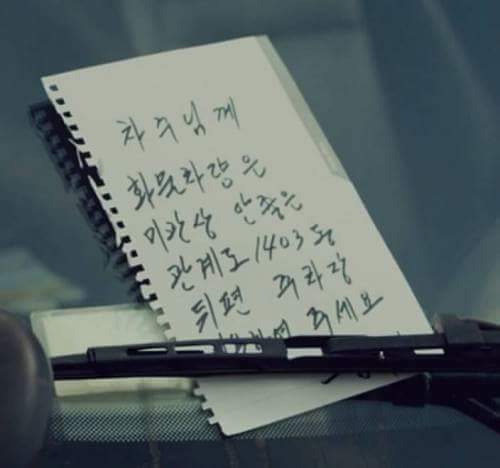 차주님께
화물차량은
미관상 안좋은
관계로 1403동
뒤편 주차장
주세요